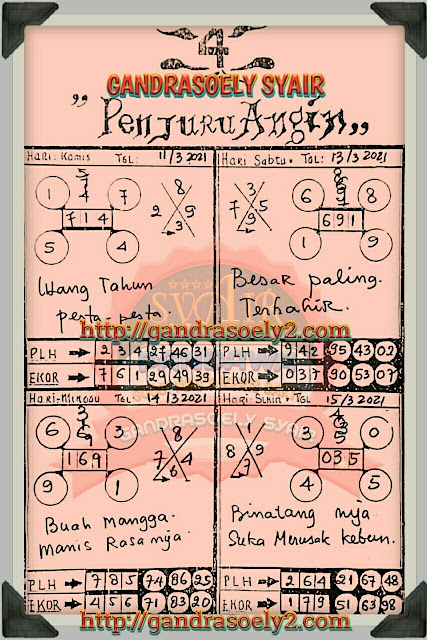 4
GANDRASOELY SYAIR
"PenJuruAngin"
Hari: Kamis TGL: 11/3 2021
1 7
7 1 4
5 4
8
2 9
3
Uang Tahun
pesta-pesta.
PLH 2 3 4 27 46 31
EKOR 7 6 1 29 49 39
Hari Sabtu TGL: 13/3 2021
6 8
6 9 1
1 9
3
7 5
9
Besar paling.
Terhahir.
http://gandrasoely2.com
PLH 9 4 2 95 43 02
EKOR 0 3 7 90 53 07
Hari-Minggu TGL 14/3 2021
6 3
1 6 9
9 1
8
7 4
6
Buah Mangga.
manis Rasa nya
PLH 7 8 5 74 86 25
EKOR 4 5 6 71 83 20
Hari: Senin TGL 15/3 2021
3 0
0 3 5
4 5
1
8 9
7
Binatang nya
Suka Merusak kebun.
GANDRASOELY SYAIR
PLH 2 6 4 21 67 48
EKOR 1 7 9 51 63 98
http://gandrasoely2.com